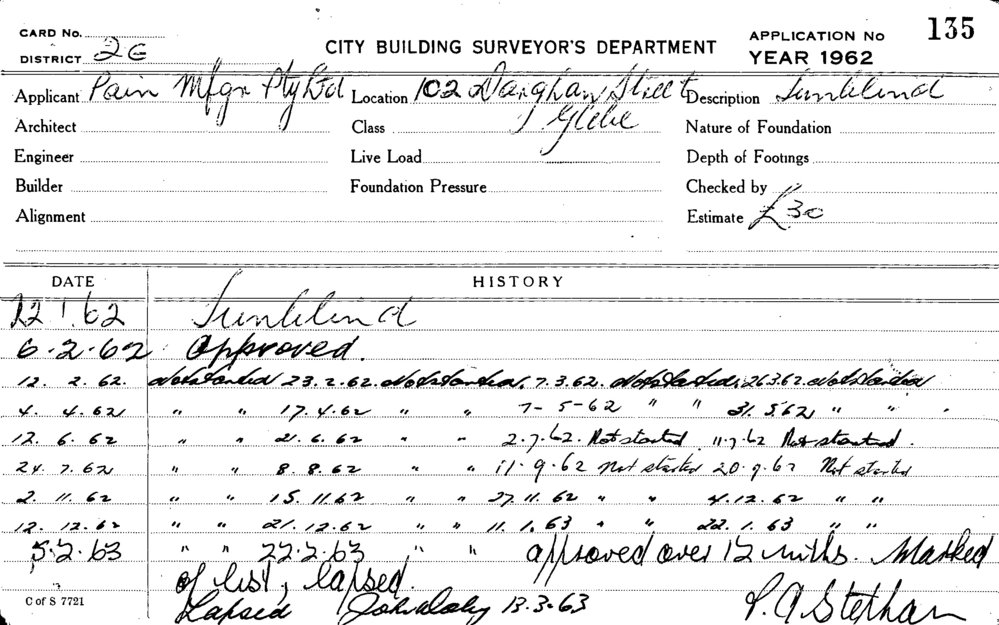 CARD No.
DISTRICT 2G
CITY BUILDING SURVEYOR'S DEPARTMENT
APPLICATION No 135
YEAR 1962
Applicant Pain Mfgr Pty Ltd Location 102 Darghan Street Description Sunblind
Architect Class Glebe Nature of Foundation
Engineer Live Load Depth of Footings
Builder Foundation Pressure Checked by
Alignment Estimate £30
DATE HISTORY
12 1. 62 Sunblind
6.2.62 Approved.
12. 2. 62. Not started 23.2.62. Not started, 7.3.62. Not started, 26.3.62. Not started
4. 4.62 " " 17.4.62 " " 7-5-62 " " 31.5.62 " "
12. 6. 62 " " 21.6.62 " " 2.7.62. Not started 11.7.62 Not started.
24. 7. 62 " " 8.8.62 " " 11.9.62 Not started 20.9.62 Not started
2. 11. 62 " " 15.11.62 " " 27.11.62 " " 4.12.62 " "
12. 12. 62 " " 21.12.62 " " 11.1.63 " " 22.1.63 " "
5.2.63 " " 22.2.63 " " approved over 12 mths. Marked
of list, lapsed.
Lapsed John Daly 13.3.63 P. A Stephan
C of S 7721